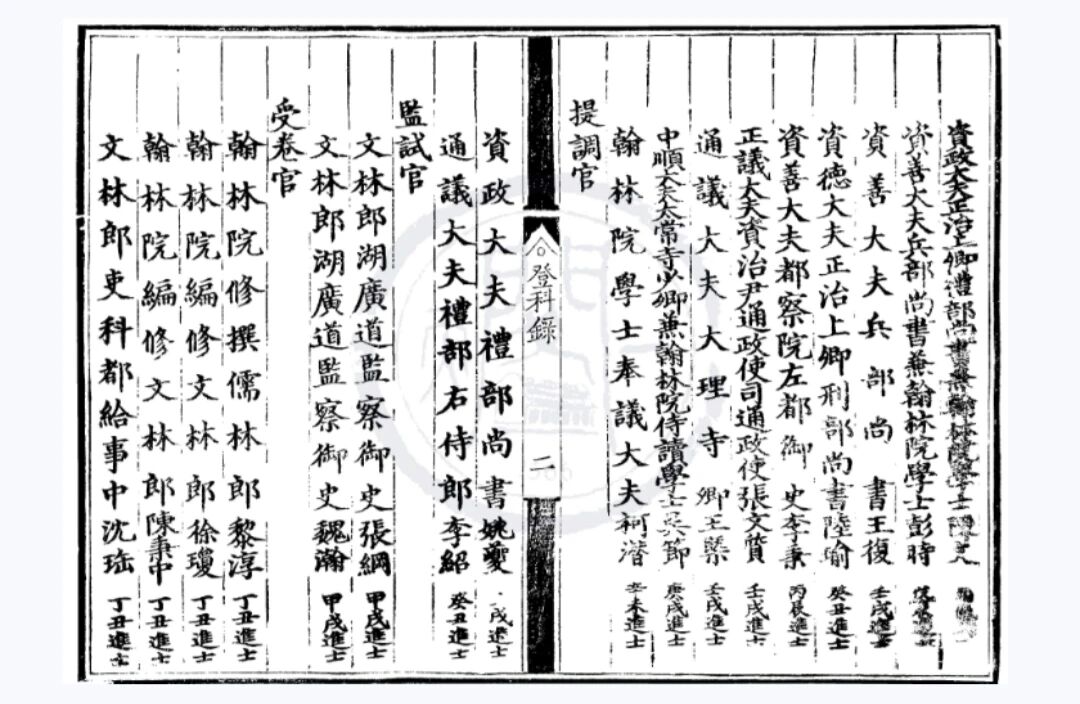 資政大夫正治上卿禮部尚書兼翰林院學士
資善大夫兵部尚書兼翰林院學士彭時
資善大夫兵部尚書王復 壬戌進士
資德大夫正治上卿刑部尚書陸瑜 癸丑進士
資善大夫都察院左都御史李秉 丙辰進士
正議大夫資治尹通政使司通政使張文質 壬戌進士
通議大夫大理寺卿王槩 壬戌進士
中順大夫太常寺少卿兼翰林院侍讀學士吳節 庚戌進士
翰林院學士奉議大夫柯潛 辛未進士
提調官
登科錄
二
資政大夫禮部尚書姚夔 戌進士
通議大夫禮部右侍郎李紹 癸丑進士
監試官
文林郎湖廣道監察御史張綱 甲戌進士
文林郎湖廣道監察御史魏瀚 甲戌進士
受卷官
翰林院修撰儒林郎黎淳 丁丑進士
翰林院編修文林郎徐瓊 丁丑進士
翰林院編修文林郎陳秉中 丁丑進士
文林郎吏科都給事中沈珤 丁丑進士